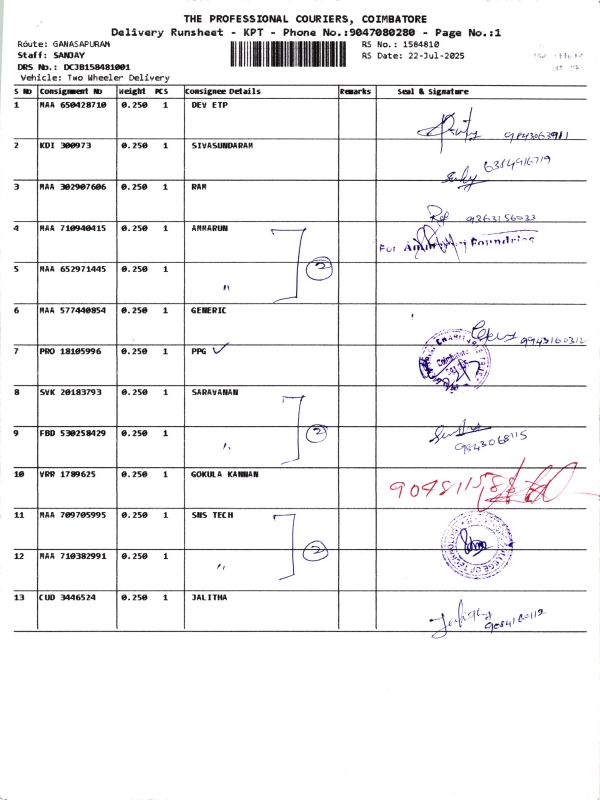 THE PROFESSIONAL COURIERS, COIMBATORE
Delivery Runsheet - KPT - Phone No.:9047080280 - Page No.:1
Route: GANASAPURAM
RS No.: 1584810
Staff: SANJAY
RS Date: 22-Jul-2025
DRS No.: DCJB158481001
Vehicle: Two Wheeler Delivery
S NO Consignment No Weight PCS Consignee Details Remarks Seal & Signature
1 MAA 650428710 0.250 1 DEV ETP
9843063911
2 KDI 300973 0.250 1 SIVASUNDARAM
6384916719
3 MAA 302907606 0.250 1 RAM
9363156033
4 MAA 710940415 0.250 1 AMMARUN
For Foundries
5 MAA 652971445 0.250 1 " 2
6 MAA 577440854 0.250 1 GENERIC
9943160312
7 PRO 18105996 0.250 1 PPG ✓
8 SVK 20183793 0.250 1 SARAVANAN
9 FBD 530258429 0.250 1 " 2
9843068115
10 VRR 1789625 0.250 1 GOKULA KANNAN
11 MAA 709705995 0.250 1 SNS TECH
12 MAA 710382991 0.250 1 " 2
COLLEGE OF TECHNOLOGY
13 CUD 3446524 0.250 1 JALITHA